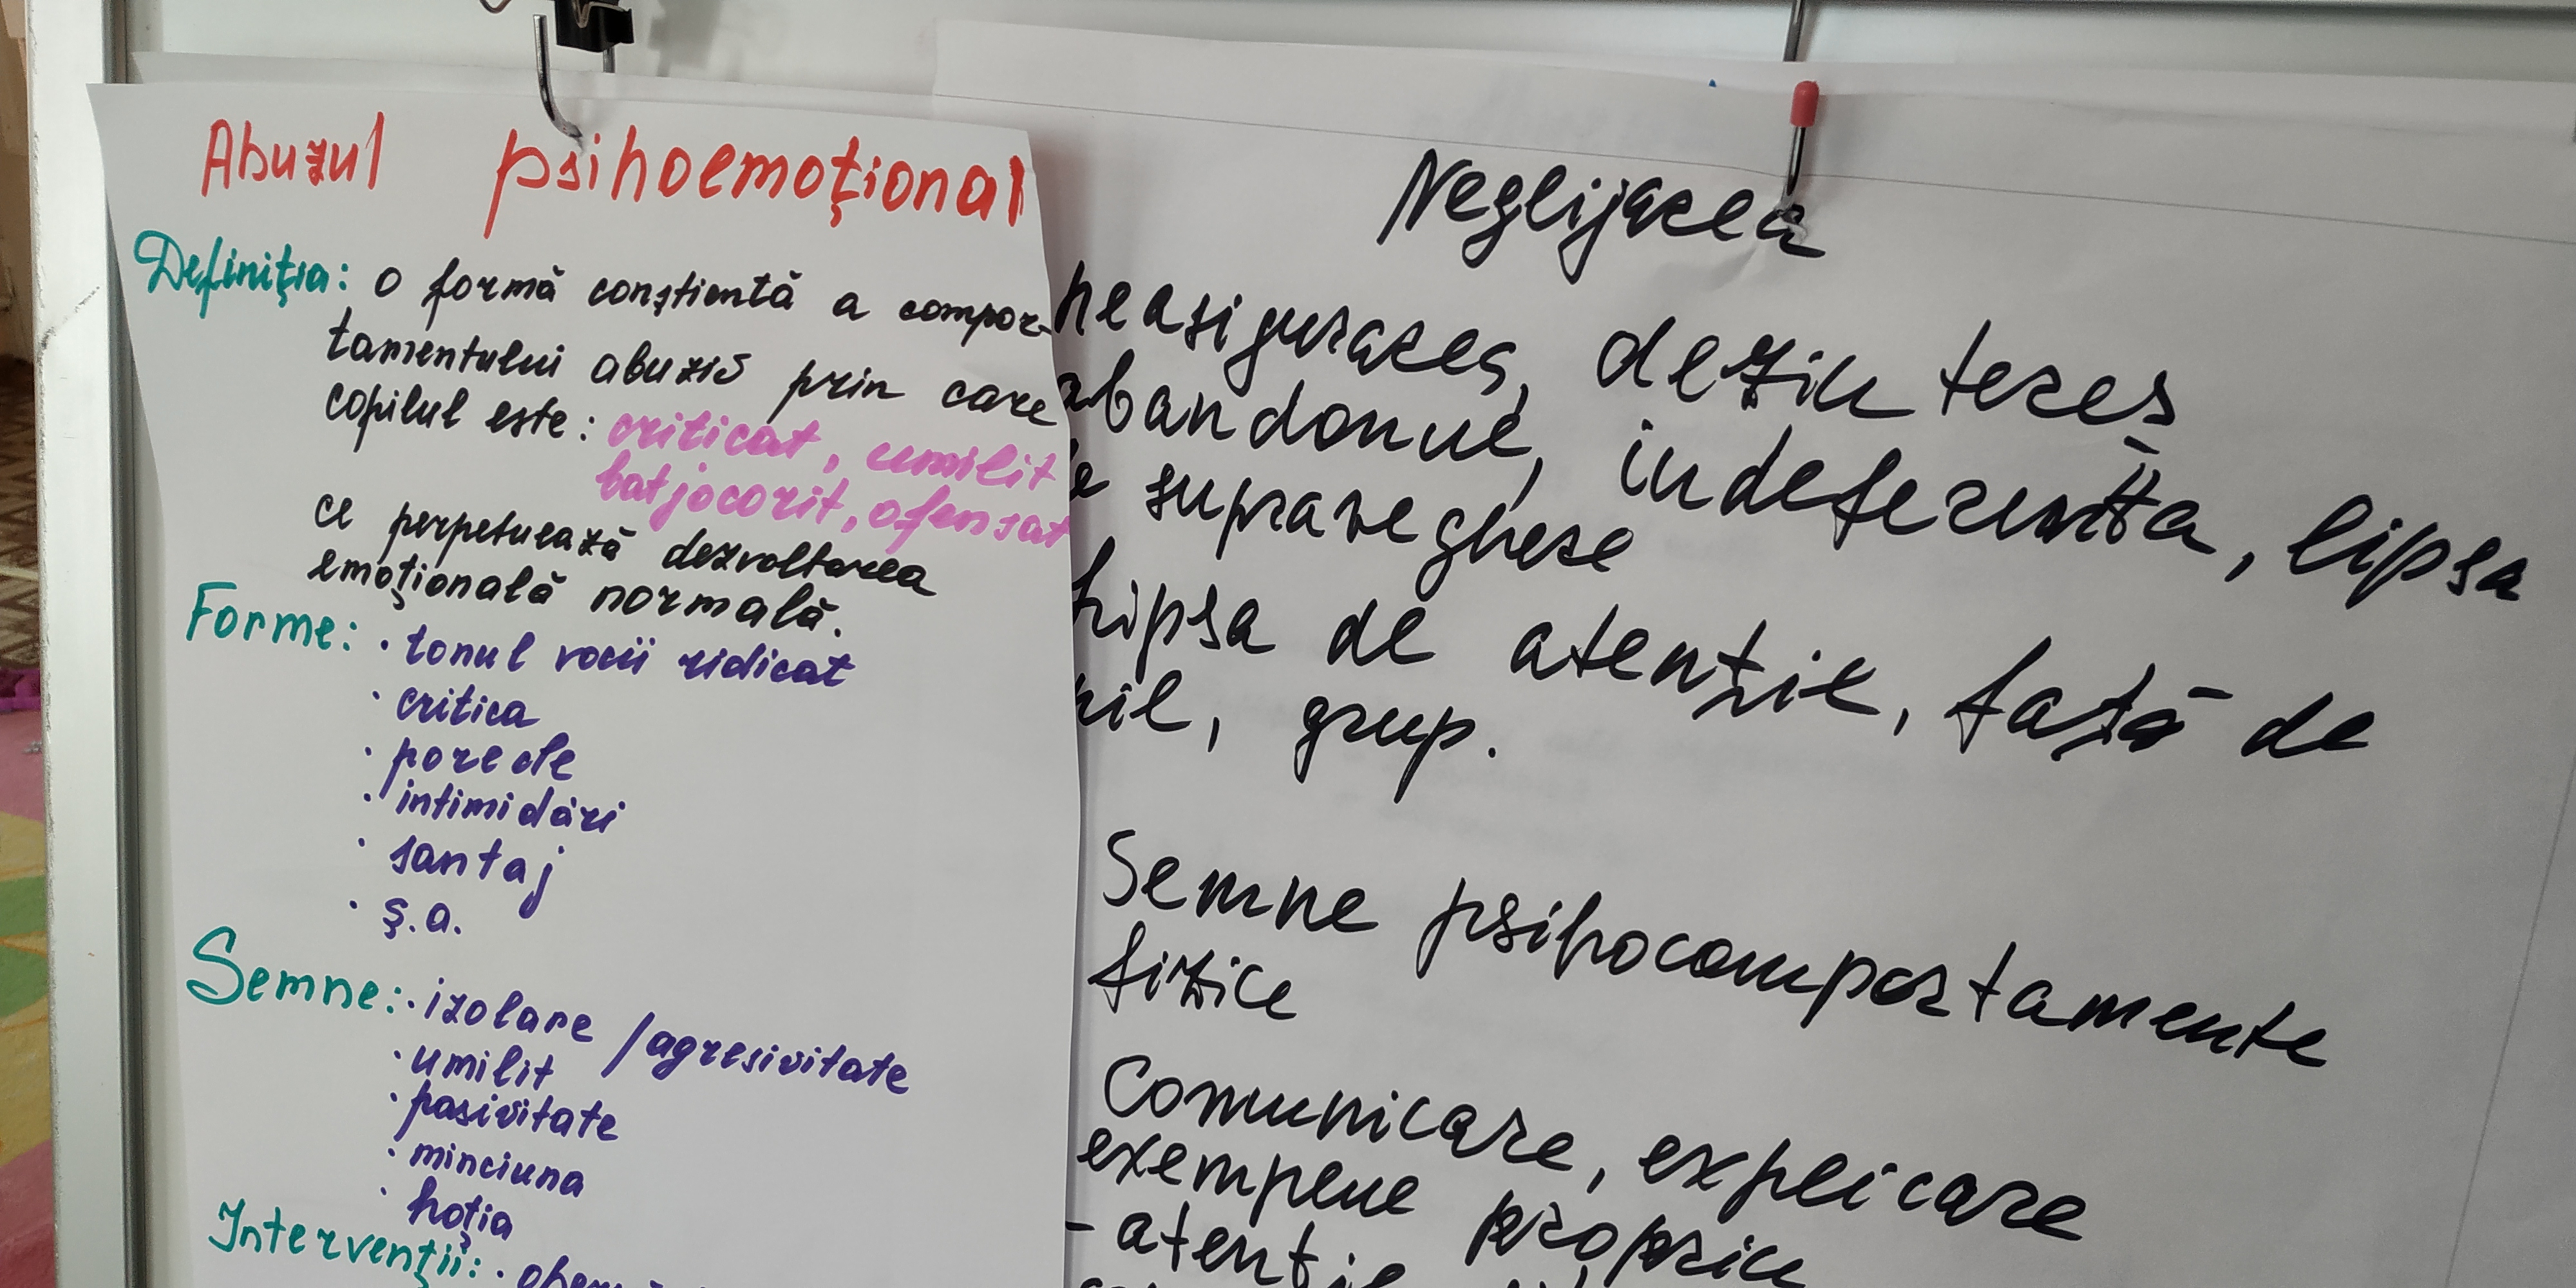 Abuzul psihoemoţional
Definiţia: o formă conştientă a compor-
tamentului abuziv prin care
copilul este: criticat, umilit
batjocorit, ofensat
ce perpetuează dezvoltarea
emoţională normală.
Forme: · tonul vocii ridicat
· critica
· porecle
· intimidări
· santaj
· ş.a.
Semne: · izolare / agresivitate
· umilit
· pasivitate
· minciuna
· hoţia
Intervenţii: ·
Neglijarea
neasigurarea, dezinteres
abandonul, indeferenţa, lipsa
supraveghere
Lipsa de atenţie, faţă de
grup.
Semne psihocomportamente
fizice
Comunicare, explicare
exemplele proprii
- atenţie